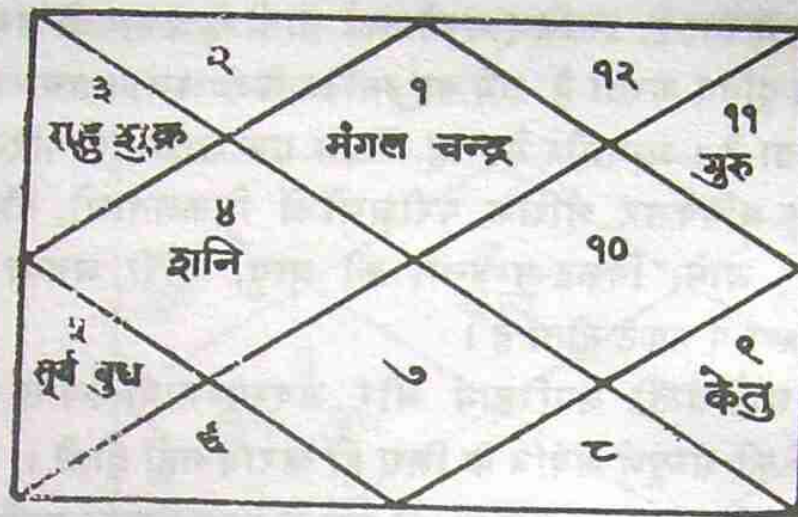 २
१
१२
३
राहु शुक्र
मंगल चन्द्र
११
गुरु
४
शनि
१०
५
सूर्य बुध
७
९
केतु
६
८